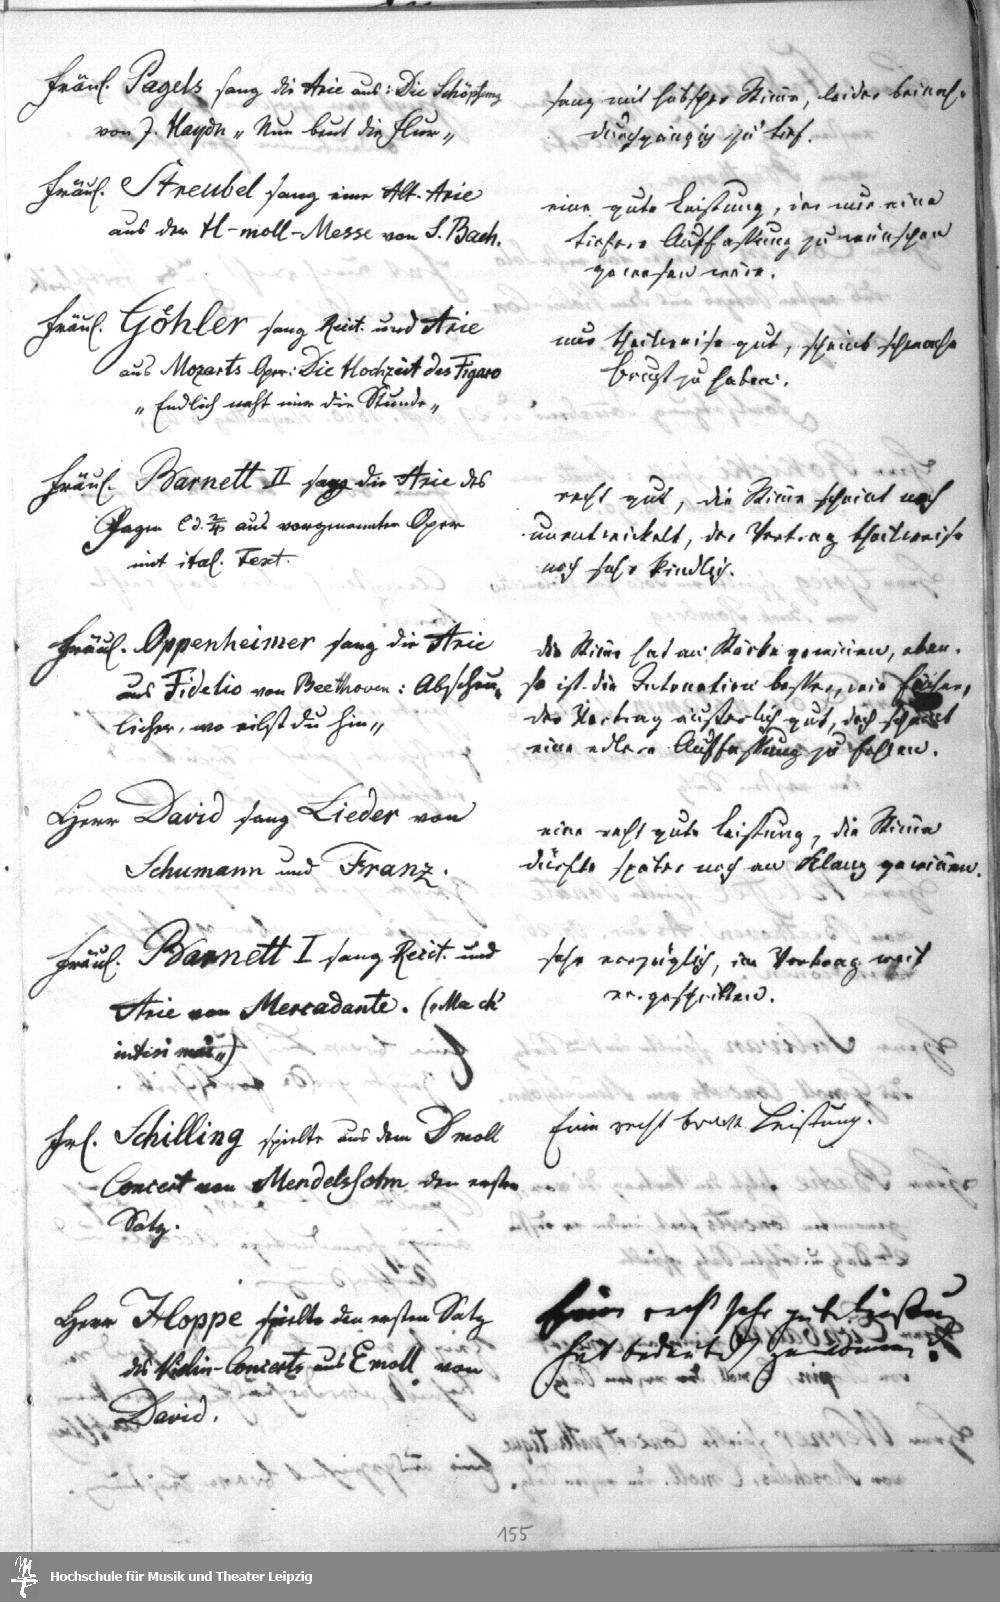 Fräul. Pagels sang die Arie aus: Die Schöpfung
von J. Haydn „Nun beut die Flur„
sang mit hübscher Stimme, leider beinah
durchgängig zu tief.
Fräul. Streubel sang eine Alt-Arie
aus der H-moll-Messe von S. Bach.
eine gute Leistung, der nur eine
tiefere Auffassung zu wünschen
gewesen wäre.
Fräul. Göhler sang Recit. und Arie
aus Mozarts Oper: Die Hochzeit des Figaro
„Endlich naht mir die Stunde„
nur theilweise gut, scheint schwache
Brust zu haben.
Fräul. Barnett II sang die Arie des
Pagen aus vorgenannter Oper
mit ital. Text.
recht gut, die Stimme scheint noch
unentwickelt, der Vortrag theilweise
noch sehr kindlich.
Fräul. Oppenheimer sang die Arie
aus Fidelio von Beethoven: Abscheu-
licher, wo eilst du hin„
die Stimme hat an Stärke gewonnen, eben-
so ist die Intonation besser, wie früher,
der Vortrag äußerlich gut, doch scheint
eine edlere Auffassung zu fehlen.
Herr David sang Lieder von
Schumann und Franz.
eine recht gute Leistung, die Stimme
dürfte später noch an Klang gewinnen.
Fräul. Barnett I sang Recit. und
Arie von Mercadante.
sehr vorzüglich, im Vortrag weit
vorgeschritten.
Frl. Schilling spielte aus dem D moll
Concert von Mendelssohn den ersten
Satz.
Eine recht brave Leistung.
Herr Hoppe spielte den ersten Satz
des Violin-Concerts aus E moll von
David.
Eine recht sehr gute Leistung
hat bedeutend gewonnen
155
Hochschule für Musik und Theater Leipzig